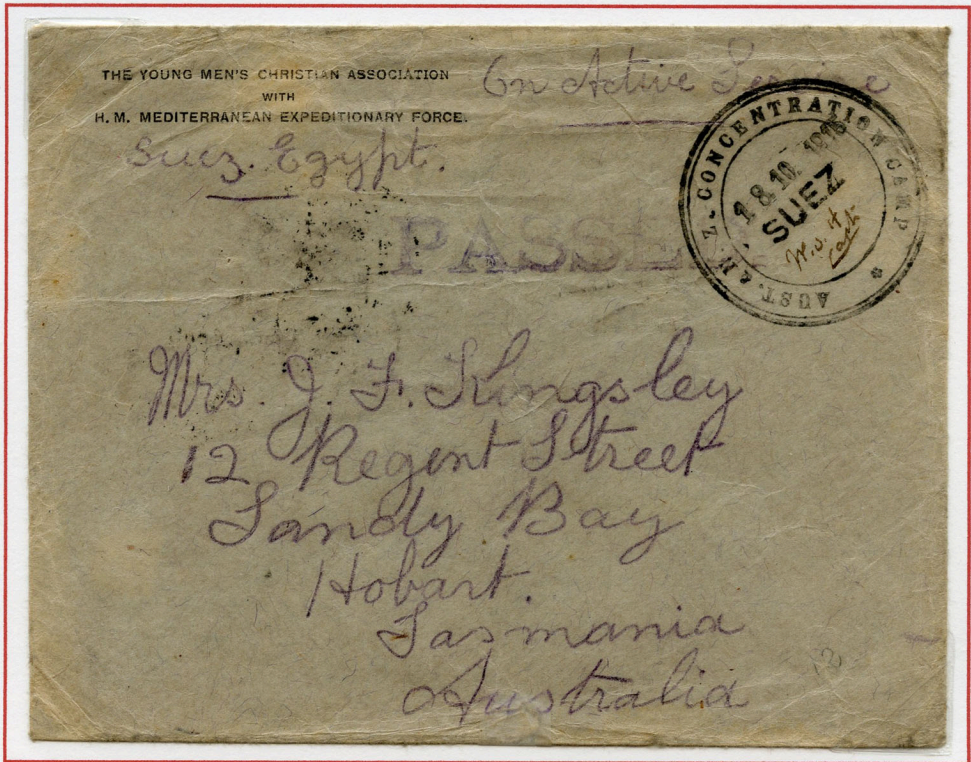 THE YOUNG MEN'S CHRISTIAN ASSOCIATION
WITH
H. M. MEDITERRANEAN EXPEDITIONARY FORCE.
On Active Service
Suez. Egypt.
PASSED
AUST. & N. Z. CONCENTRATION CAMP *
18.10. 1916
SUEZ
Capt
Mrs. J. F. Kingsley
12 Regent Street
Sandy Bay
Hobart.
Tasmania
Australia
12